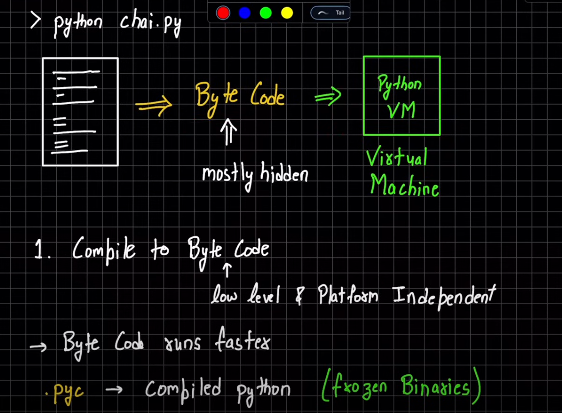 > python chai.py
Byte Code
Python
VM
mostly hidden
Virtual
Machine
1. Compile to Byte Code
low level & Platform Independent
→ Byte Code runs faster
.pyc → Compiled python (frozen Binaries)